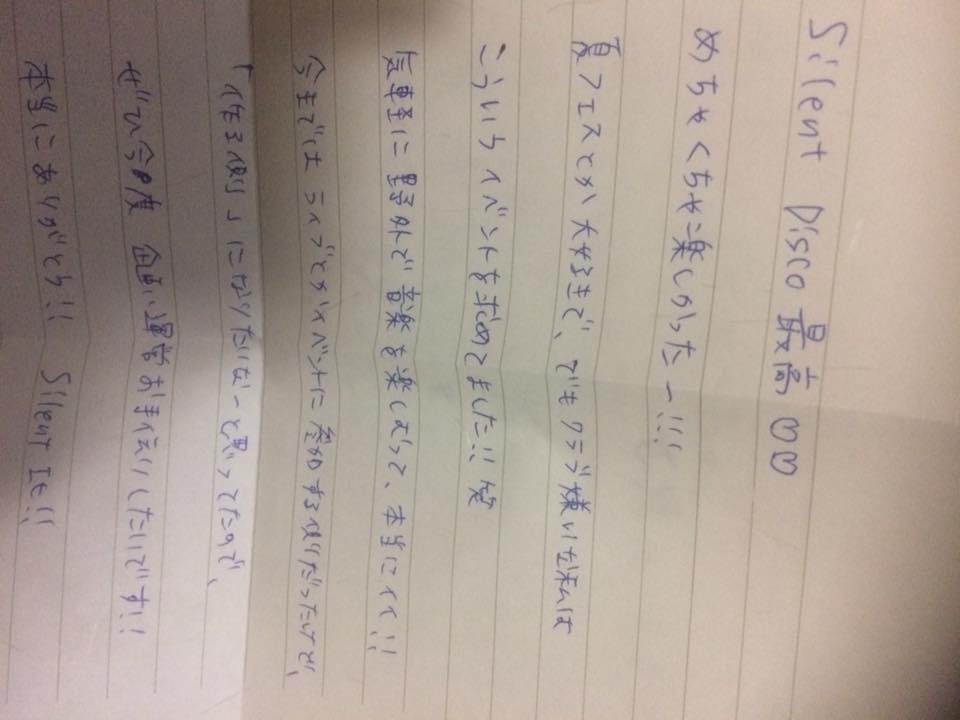 Silent Disco 最高♡♡
めちゃくちゃ楽しかったー!!!!
夏フェスとか大好きで、でもクラブ嫌いな私は
こういうイベントを求めてました!! 笑
気軽に野外で音楽を楽しむって、本当にイイ!!
今まではライブとかイベントに参加する側だったけど、
「作る側」になりたいなーと思ってたので、
ぜひ今度企画、運営お手伝いしたいです!!
本当にありがとう!! Silent It!!